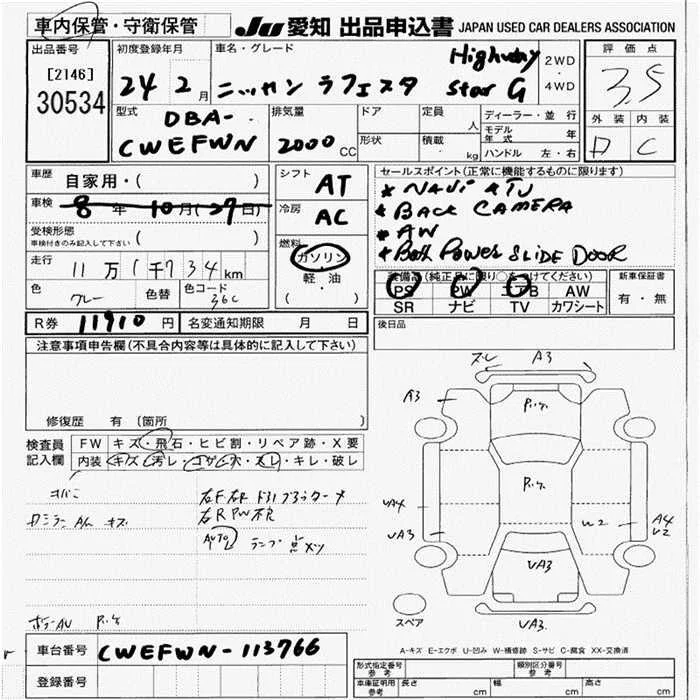 車内保管・守衛保管
JU 愛知 出品申込書 JAPAN USED CAR DEALERS ASSOCIATION
出品番号
[2146]
30534
初度登録年月
24 2 月
車名・グレード
ニッサン ラフェスタ Highway Star G
2WD
・
4WD
評価点
3.5
外装 内装
D C
型式
DBA-
CWEFWN
排気量
2000 CC
ドア
形状
定員
人
積載
kg
ディーラー・並行
モデル年式 年
ハンドル 左・右
車歴 自家用・( )
車検 8年 10月(27日)
受検形態
車検付きのみ記入して下さい ( )
走行 11万1千734km
色 グレー 色替 色コード 36C
シフト AT
冷房 AC
燃料
ガソリン
軽・油
( )
セールスポイント(正常に機能するものに限ります)
* NAVI & TV
* BACK CAMERA
* AW
* Both Power SLIDE DOOR
装備品(純正品に限り○をつけてください)
PS PW エアB AW
SR ナビ TV カワシート
新車保証書
有・無
R券 11910 円 名変通知期限 月 日
後日品
注意事項申告欄(不具合内容等は具体的に記入して下さい)
修復歴 有 〔箇所 〕
検査員
記入欄
FW キズ・飛石・ヒビ割・リペア跡・X要
内装 キズ・汚レ・コゲ・穴・スレ・キレ・破レ
AUTO ランプ 点メツ
スレ A3
A3
P.ケ
P.ケ
UA4
UA3
W2
A4
U2
UA3
スペア
UA3
A-キズ E-エクボ U-凹み W-補修跡 S-サビ C-腐食 XX-交換済
車台番号 CWEFWN-113766
登録番号
形式指定番号
参考
類別区分番号
参考
車庫証明用
参考
長さ cm 幅 cm 高さ cm